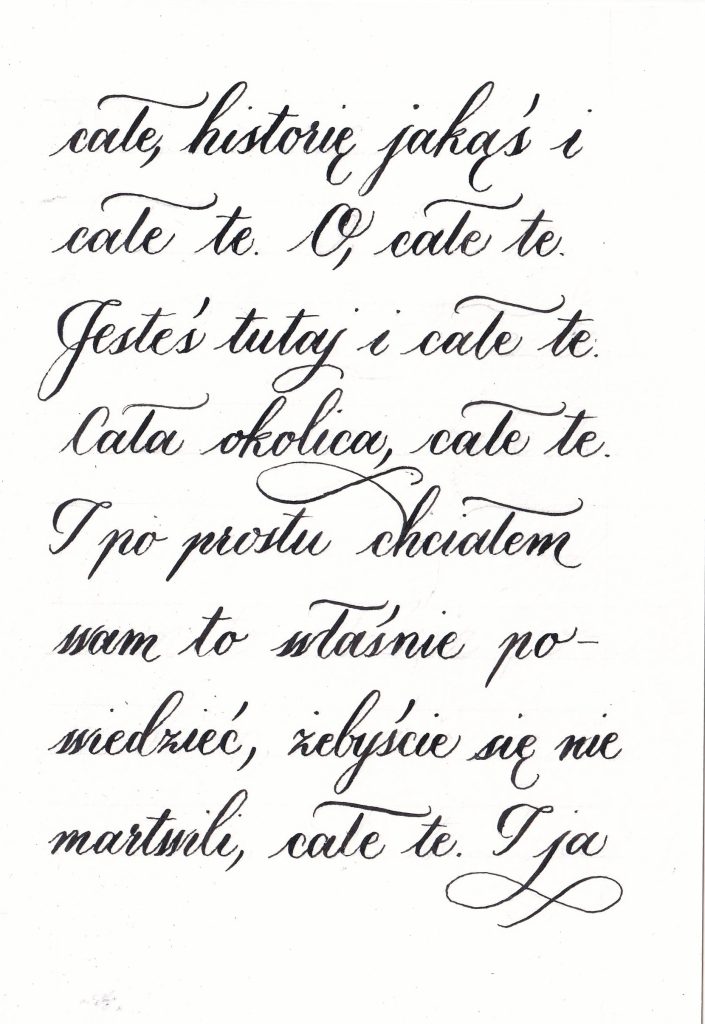 całe, historię jakąś i
całe te. O, całe te.
Jesteś tutaj i całe te.
Cała okolica, całe te.
I po prostu chciałem
wam to właśnie po-
wiedzieć, żebyście się nie
martwili, całe te. I ja